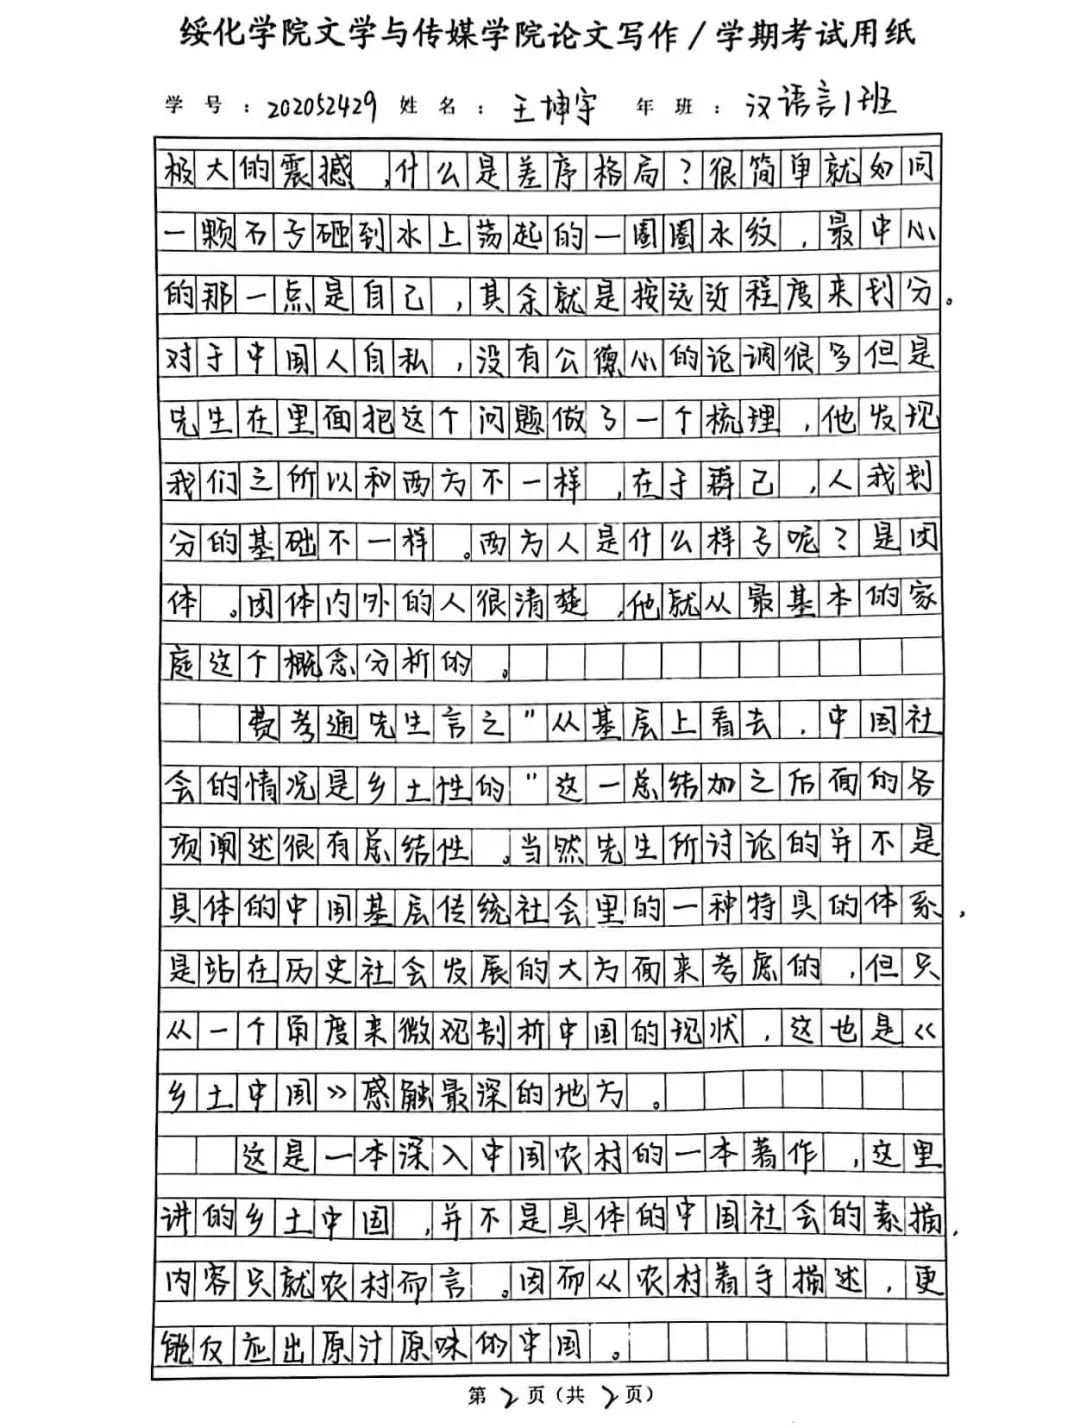 绥化学院文学与传媒学院论文写作/学期考试用纸
学号：202052429 姓名：王坤宇 年班：汉语言1班
极大的震撼，什么是差序格局？很简单就如同
一颗石子砸到水上荡起的一圈圈水纹，最中心
的那一点是自己，其余就是按远近程度来划分。
对于中国人自私，没有公德心的论调很多但是
先生在里面把这个问题做了一个梳理，他发现
我们之所以和西方不一样，在于群己，人我划
分的基础不一样。西方人是什么样子呢？是团
体。团体内外的人很清楚，他就从最基本的家
庭这个概念分析的。
费孝通先生言之"从基层上看去，中国社
会的情况是乡土性的"这一总结加之后面的各
项阐述很有总结性。当然先生所讨论的并不是
具体的中国基层传统社会里的一种特具的体系，
是站在历史社会发展的大方面来考虑的，但只
从一个角度来微观剖析中国的现状，这也是《
乡土中国》感触最深的地方。
这是一本深入中国农村的一本著作，这里
讲的乡土中国，并不是具体的中国社会的素描，
内容只就农村而言。因而从农村着手描述，更
能反应出原汁原味的中国。
第2页(共2页)